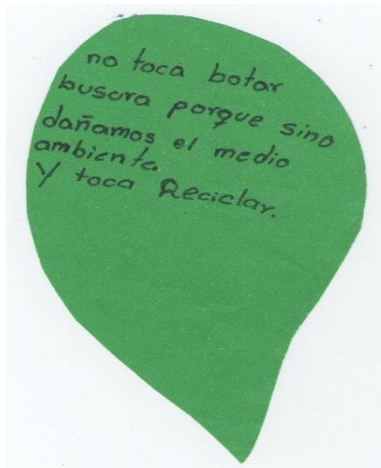 no toca botar
busura porque sino
dañamos el medio
ambiente.
Y toca Reciclar.